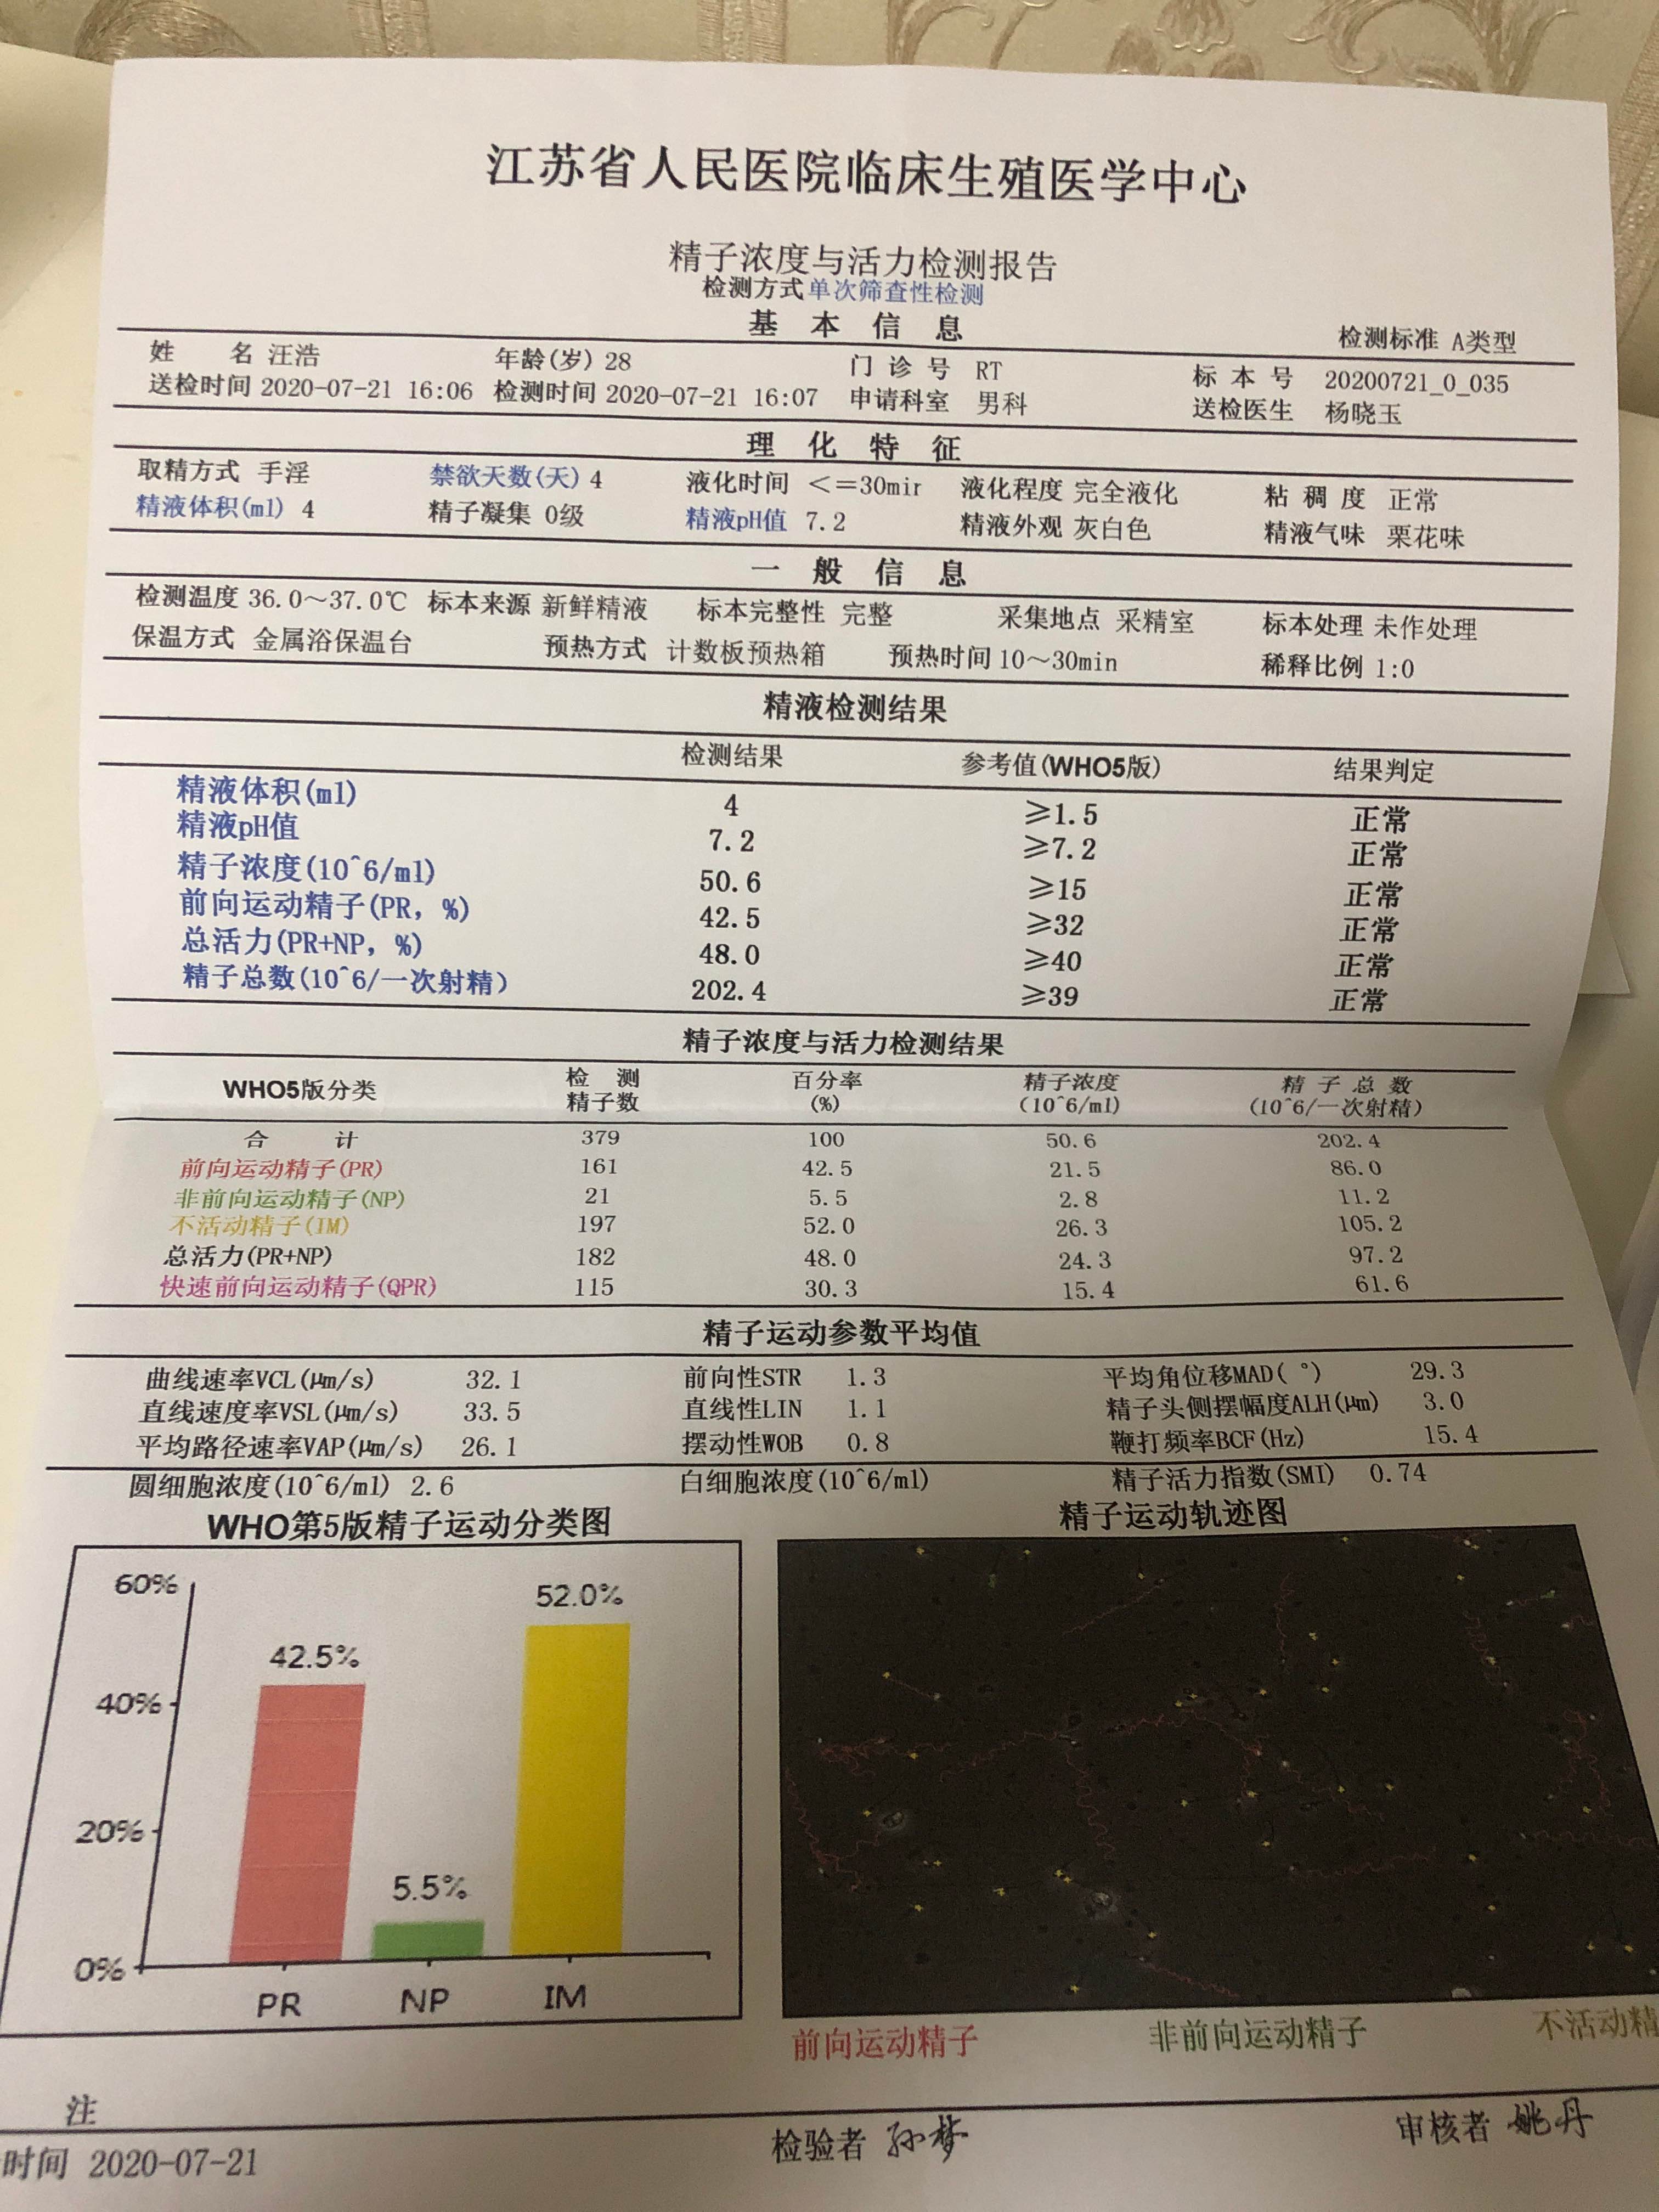 江苏省人民医院临床生殖医学中心
精子浓度与活力检测报告
检测方式 单次筛查性检测
基 本 信 息 检测标准 A类型
姓 名 汪浩 年龄(岁) 28 门 诊 号 RT 标 本 号 20200721_0_035
送检时间 2020-07-21 16:06 检测时间 2020-07-21 16:07 申请科室 男科 送检医生 杨晓玉
理 化 特 征
取精方式 手淫 禁欲天数(天) 4 液化时间 <=30min 液化程度 完全液化 粘 稠 度 正常
精液体积(ml) 4 精子凝集 0级 精液pH值 7.2 精液外观 灰白色 精液气味 栗花味
一 般 信 息
检测温度 36.0～37.0℃ 标本来源 新鲜精液 标本完整性 完整 采集地点 采精室 标本处理 未作处理
保温方式 金属浴保温台 预热方式 计数板预热箱 预热时间 10～30min 稀释比例 1:0
精液检测结果
检测结果 参考值(WHO5版) 结果判定
精液体积(ml) 4 ≥1.5 正常
精液pH值 7.2 ≥7.2 正常
精子浓度(10^6/ml) 50.6 ≥15 正常
前向运动精子(PR, %) 42.5 ≥32 正常
总活力(PR+NP, %) 48.0 ≥40 正常
精子总数(10^6/一次射精) 202.4 ≥39 正常
精子浓度与活力检测结果
WHO5版分类 检 测 精子数 百分率 (%) 精子浓度 (10^6/ml) 精 子 总 数 (10^6/一次射精)
合 计 379 100 50.6 202.4
前向运动精子(PR) 161 42.5 21.5 86.0
非前向运动精子(NP) 21 5.5 2.8 11.2
不活动精子(IM) 197 52.0 26.3 105.2
总活力(PR+NP) 182 48.0 24.3 97.2
快速前向运动精子(QPR) 115 30.3 15.4 61.6
精子运动参数平均值
曲线速率VCL(μm/s) 32.1 前向性STR 1.3 平均角位移MAD(°) 29.3
直线速度率VSL(μm/s) 33.5 直线性LIN 1.1 精子头侧摆幅度ALH(μm) 3.0
平均路径速率VAP(μm/s) 26.1 摆动性WOB 0.8 鞭打频率BCF(Hz) 15.4
圆细胞浓度(10^6/ml) 2.6 白细胞浓度(10^6/ml) 精子活力指数(SMI) 0.74
WHO第5版精子运动分类图 精子运动轨迹图
60%
52.0%
42.5%
40%
20%
5.5%
0%
PR NP IM
前向运动精子 非前向运动精子 不活动精
注
时间 2020-07-21 检验者 孙梦 审核者 姚丹